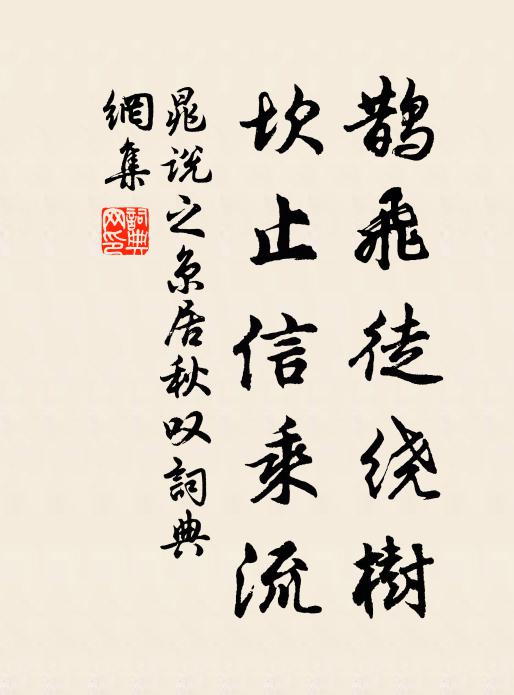 鹊飛徒绕樹
坎止信乘流
晁说之京居秋叹詞典
網集
詞典
网印